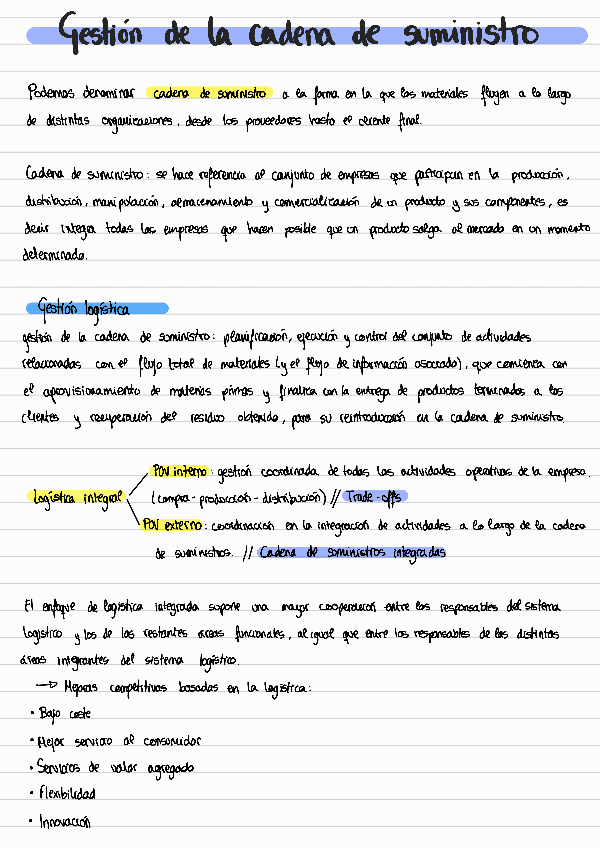 Gestión de la cadena de suministro
Podemos denominar cadena de suministro a la forma en la que los materiales fluyen a lo largo
de distintas organizaciones, desde los proveedores hasta el cliente final.
Cadena de suministro: se hace referencia al conjunto de empresas que participan en la producción,
distribución, manipulación, almacenamiento y comercialización de un producto y sus componentes, es
decir integra todas las empresas que hacen posible que un producto salga al mercado en un momento
determinado.
Gestión logística
gestión de la cadena de suministro: planificación, ejecución y control del conjunto de actividades
relacionadas con el flujo total de materiales (y el flujo de información asociado), que comienza con
el aprovisionamiento de materias primas y finaliza con la entrega de productos terminados a los
clientes y recuperación del residuo obtenido, para su reintroducción en la cadena de suministro.
POV interno: gestión coordinada de todas las actividades operativas de la empresa.
logística integral (compra - producción - distribución) // Trade-offs
POV externo: coordinación en la integración de actividades a lo largo de la cadena
de suministros. // Cadena de suministros integradas
El enfoque de logística integrada supone una mayor cooperación entre los responsables del sistema
logístico y los de las restantes áreas funcionales, al igual que entre los responsables de las distintas
áreas integrantes del sistema logístico.
→ Mejoras competitivas basadas en la logística:
• Bajo coste
• Mejor servicio al consumidor
• Servicios de valor agregado
• Flexibilidad
• Innovación